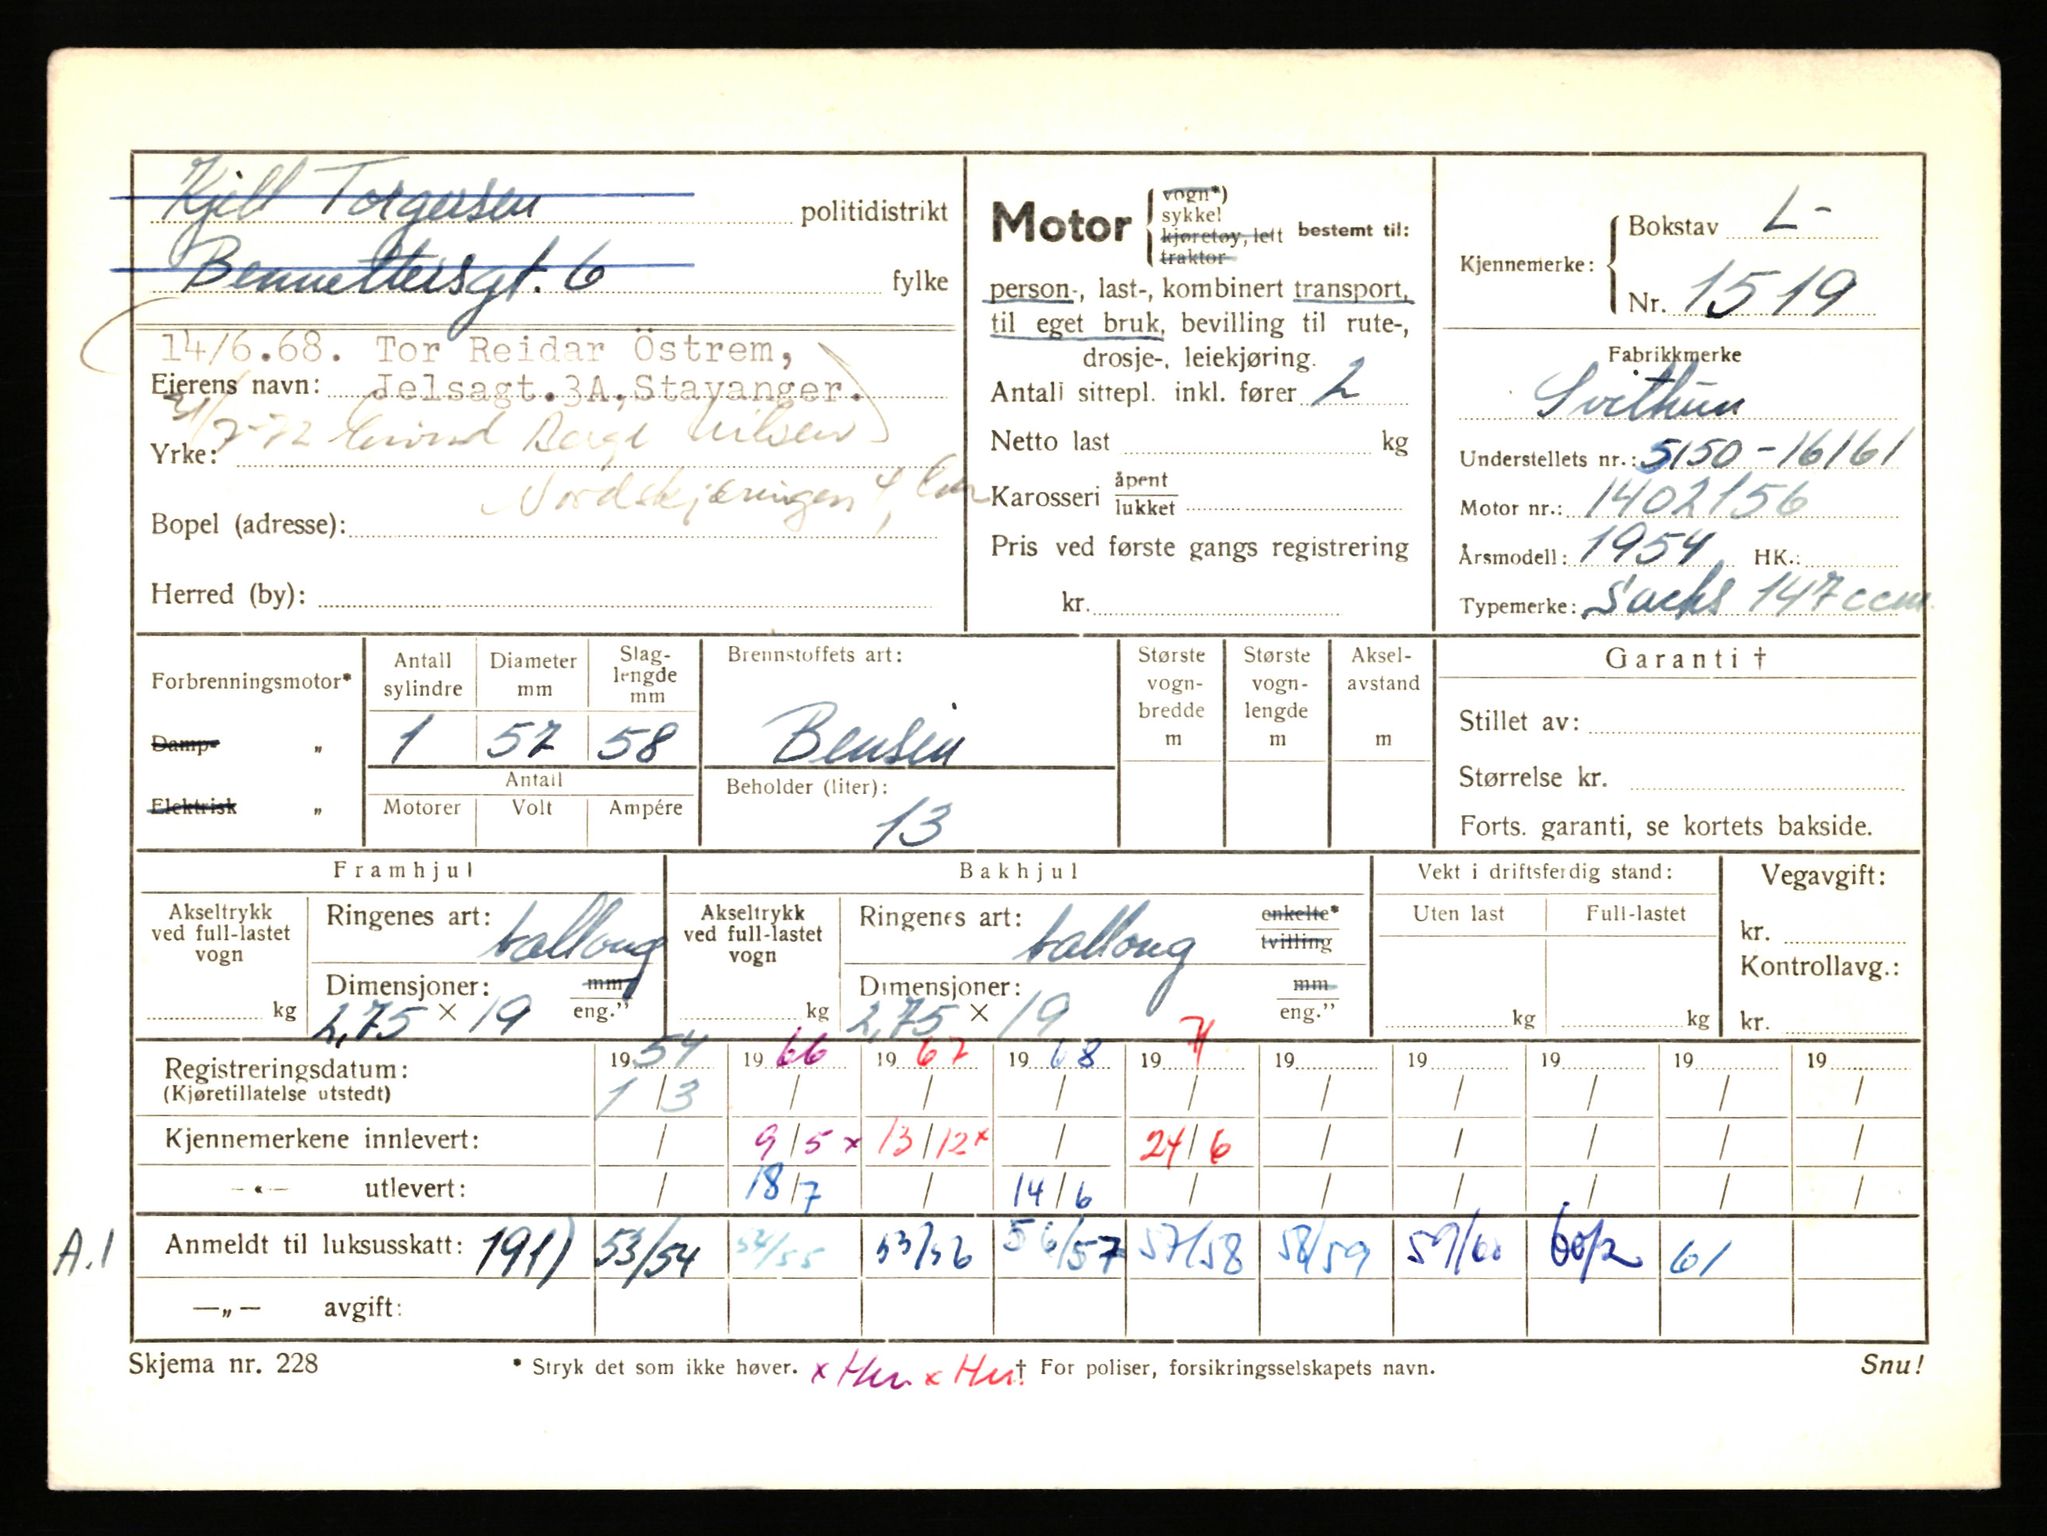 Kjell Torgersen politidistrikt
Bennettersgt. 6 fylke
14/6.68. Tor Reidar Östrem,
Eierens navn: Jelsagt.3A, Stavanger.
Yrke: 21/7-72 Eivind Berge Nilsen
Nordskjæringen 4,
Bopel (adresse):
Herred (by):
Motor vogn*)
sykkel
kjøretøy, lett
traktor
bestemt til:
person-, last-, kombinert transport,
til eget bruk, bevilling til rute-,
drosje-, leiekjøring.
Antall sittepl. inkl. fører 2
Netto last kg
Karosseri åpent
lukket
Pris ved første gangs registrering
kr.
Kjennemerke: Bokstav L-
Nr. 1519
Fabrikkmerke
Svithun
Understellets nr.: 5150-16161
Motor nr.: 1402156
Årsmodell: 1954 HK.:
Typemerke: Sachs 147 ccm
Forbrenningsmotor*
Damp- „
Elektrisk „
Antall sylindre
1
Diameter mm
57
Slaglengde mm
58
Antall
Motorer Volt Ampére
Brennstoffets art:
Bensin
Beholder (liter):
13
Største vogn-bredde m
Største vogn-lengde m
Aksel-avstand m
Garanti †
Stillet av:
Størrelse kr.
Forts. garanti, se kortets bakside.
Framhjul
Akseltrykk ved full-lastet vogn
kg
Ringenes art: ballong
Dimensjoner: mm
2,75 × 19 eng.”
Bakhjul
Akseltrykk ved full-lastet vogn
kg
Ringenes art: ballong enkelte*
tvilling
Dimensjoner: mm
2,75 × 19 eng.”
Vekt i driftsferdig stand:
Uten last Full-lastet
kg kg
Vegavgift:
kr.
Kontrollavg.:
kr.
Registreringsdatum: 1954 1966 1967 1968 1971 19 19 19 19 19
(Kjøretillatelse utstedt) 1/3 / / / / / / / / /
Kjennemerkene innlevert: / 9/5 x 13/12 x / 24/6 / / / / /
—«— utlevert: / 18/7 / 14/6 / / / / / /
A.1 Anmeldt til luksusskatt: 191) 53/54 54/55 53/56 56/57 57/58 58/59 59/60 60/2 61
—„— avgift:
Skjema nr. 228 * Stryk det som ikke høver. x Hu x Hu † For poliser, forsikringsselskapets navn. Snu!